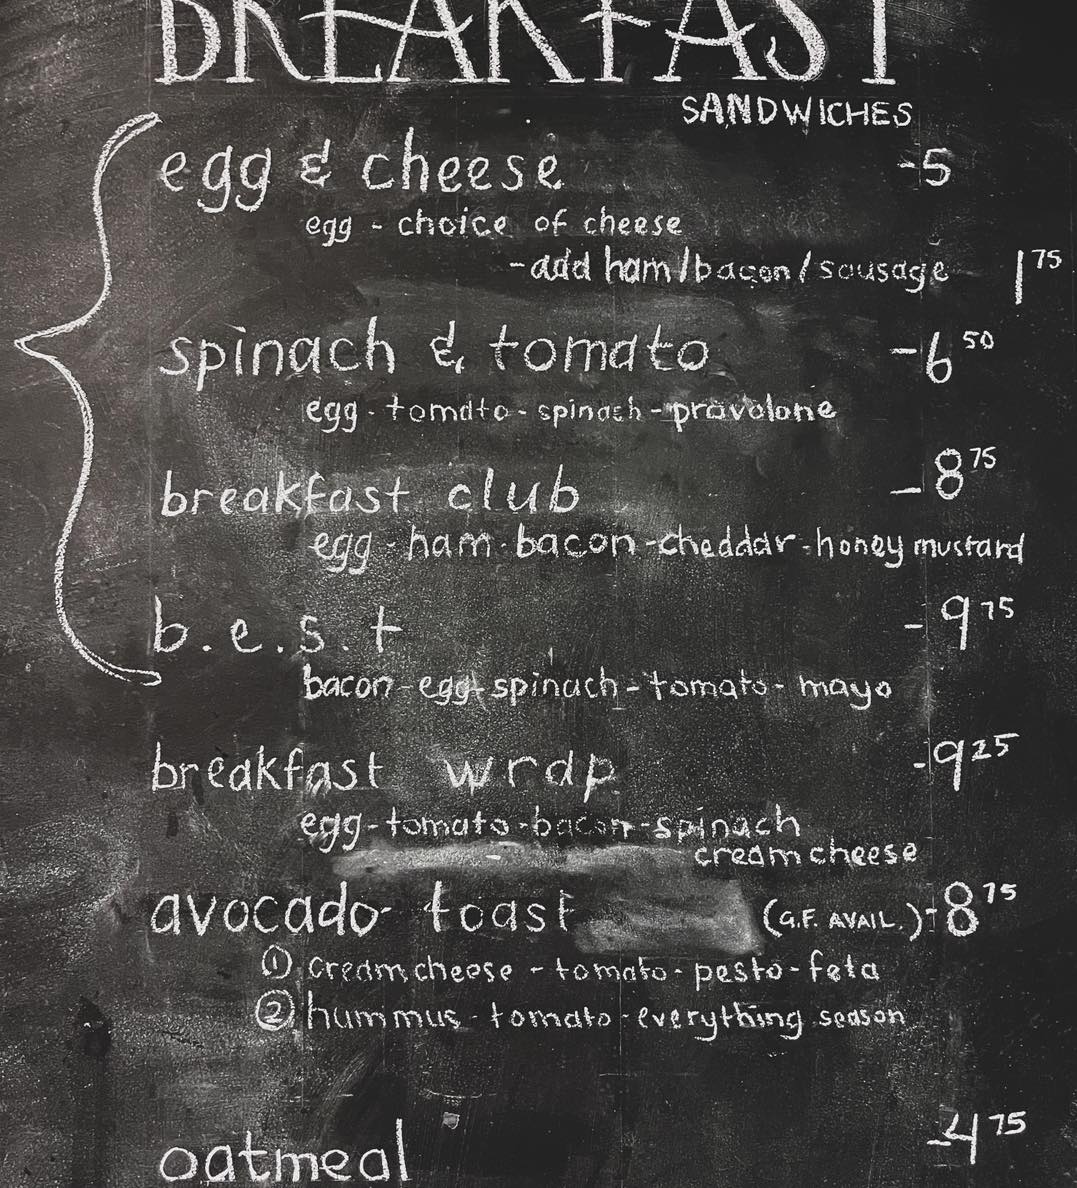 BREAKFAST
SANDWICHES
egg & cheese -5
egg - choice of cheese
-add ham/bacon/sausage 1 75
spinach & tomato -6 50
egg - tomato - spinach - provolone
breakfast club -8 75
egg - ham - bacon - cheddar - honey mustard
b.e.s.t - 9 75
bacon - egg - spinach - tomato - mayo
breakfast wrap -9 25
egg - tomato - bacon - spinach
cream cheese
avocado toast (G.F. AVAIL.) -8 75
① cream cheese - tomato - pesto - feta
② hummus - tomato - everything season
oatmeal -4 75